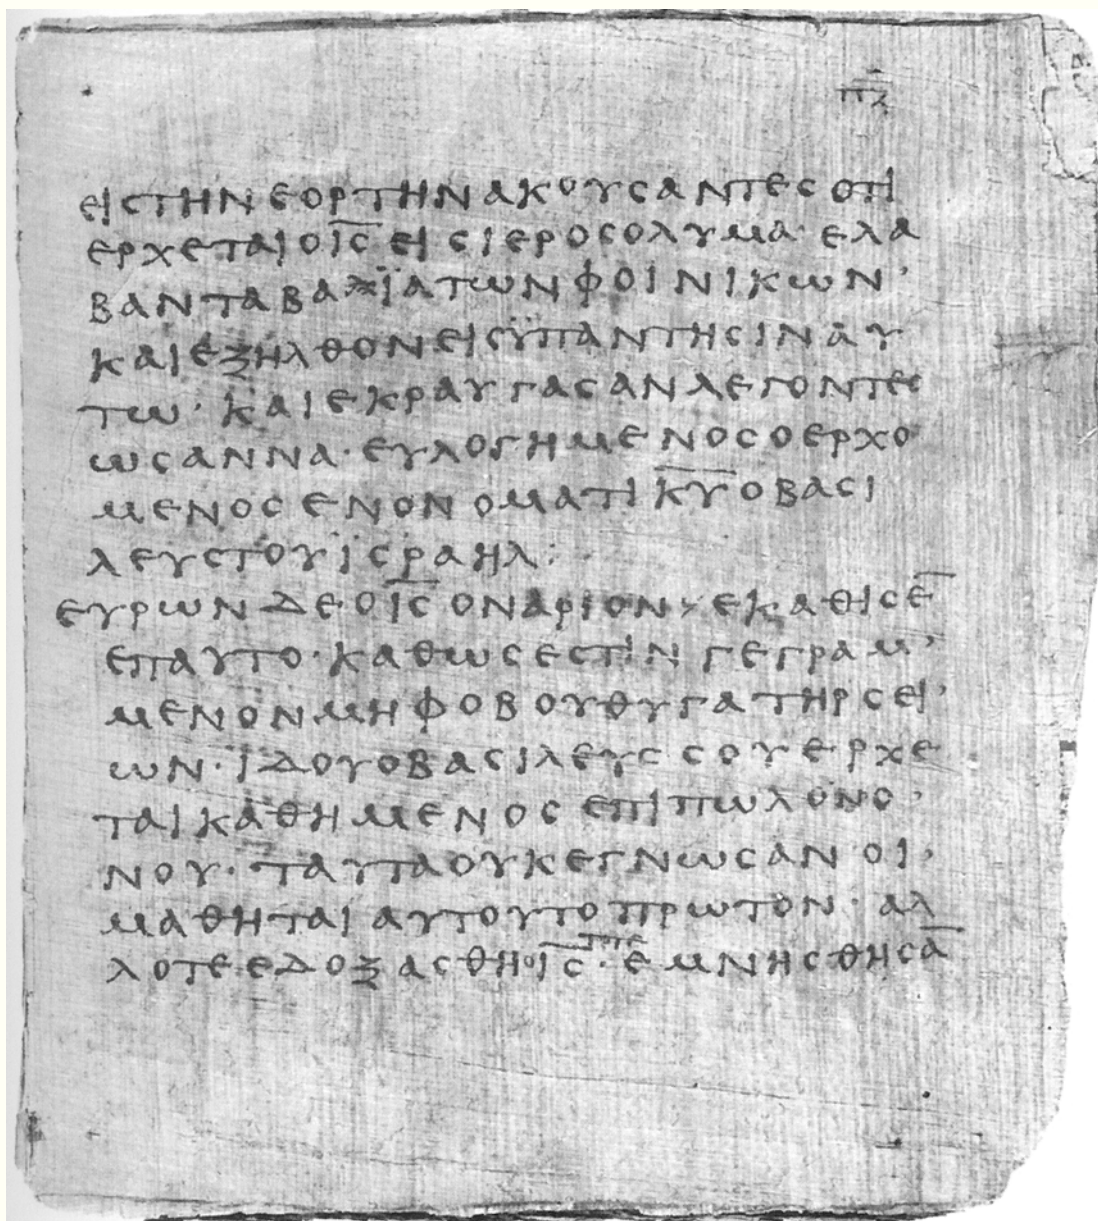 πζ
ειςτηνεορτηνακουςαντεςοτι
ερχεταιοι̅ς̅ειςιεροςολυμα· ελα
βανταβαϊατωνφοινικων·
καιεξηλθονειςϋπαντηςιναυ
τω· καιεκραυγαςανλεγοντες
ωςαννα· ευλογημενοςοερχο
μενοςενονοματικ̅υ̅οβαςι
λευςτουιςραηλ:
ευρωνδεοι̅ς̅οναριον· εκαθιςε̅
επαυτο· καθωςεςτινγεγραμ᾽
μενονμηφοβουθυγατηρςει᾽
ων· ϊδουοβαςιλευςςουερχε
ταικαθημενοςεπιπωλονο᾽
νου· ταυταουκεγνωςανοι᾽
μαθηταιαυτουτοπρωτον· αλ
λοτεεδοξαςθηοι̅ς̅· τοτεεμνηςθηςα̅